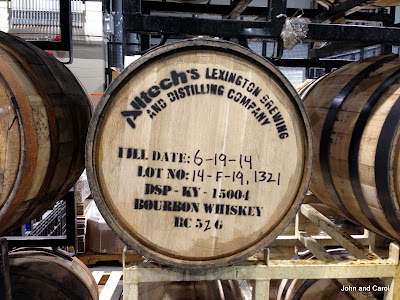 Alltech's LEXINGTON BREWING
AND DISTILLING COMPANY
FILL DATE: 6-19-14
LOT NO: 14-F-19, 1321
DSP - KY - 15004
BOURBON WHISKEY
RC 52G
John and Carol